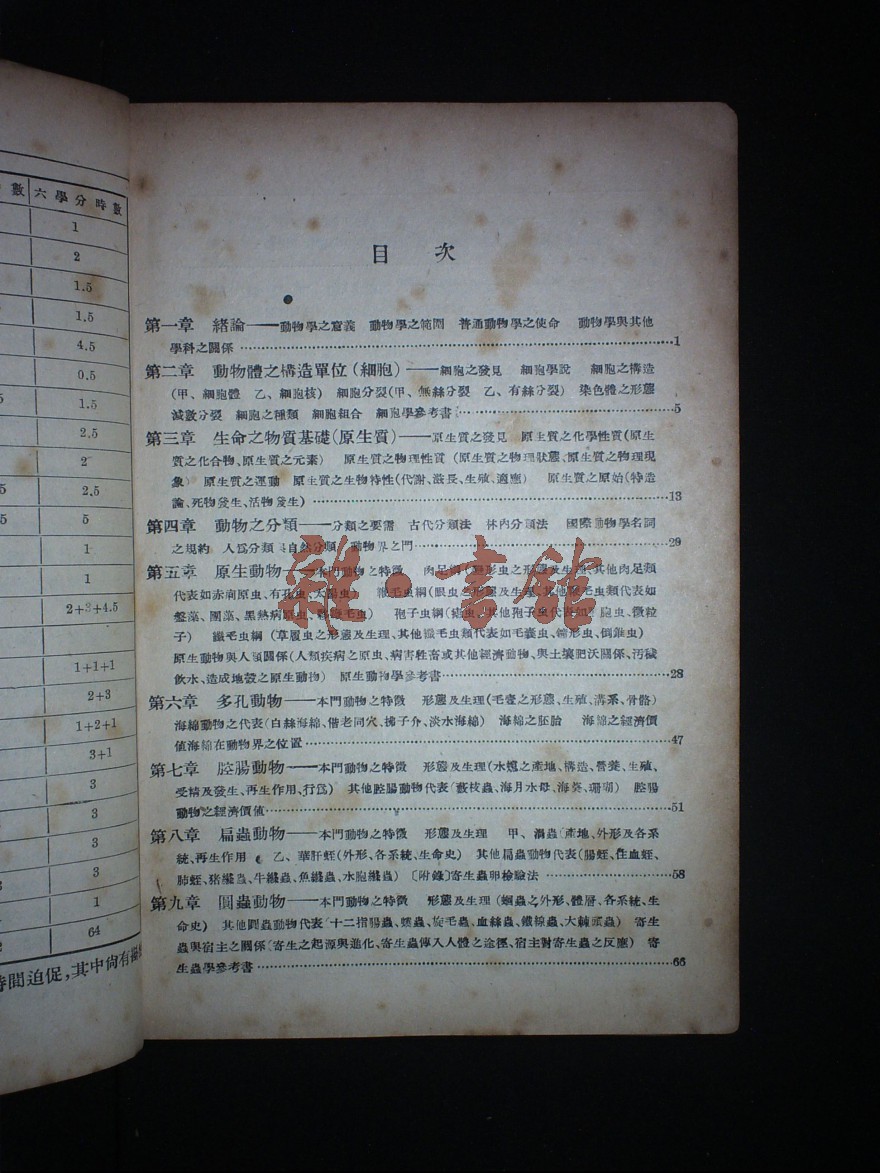 數
六學分時數
1
2
1.5
1.5
4.5
0.5
1.5
2.5
2
2.5
5
1
1
2+3+4.5
1+1+1
2+3
1+2+1
3+1
3
3
3
3
1
64
時間迫促,其中尙有
目 次
第一章 緒論——動物學之意義 動物學之範圍 普通動物學之使命 動物學與其他
學科之關係……1
第二章 動物體之構造單位(細胞)——細胞之發見 細胞學說 細胞之構造
(甲、細胞體 乙、細胞核) 細胞分裂(甲、無絲分裂 乙、有絲分裂) 染色體之形態
減數分裂 細胞之種類 細胞組合 細胞學參考書……5
第三章 生命之物質基礎(原生質)——原生質之發見 原生質之化學性質(原生
質之化合物、原生質之元素) 原生質之物理性質(原生質之物理狀態、原生質之物理現
象) 原生質之運動 原生質之生物特性(代謝、滋長、生殖、適應) 原生質之原始(特造
論、死物發生、活物發生)……13
第四章 動物之分類——分類之要需 古代分類法 林內分類法 國際動物學名詞
之規約 人爲分類與自然分類 動物界之門……29
第五章 原生動物——本門動物之特徵 肉足綱(變形虫之形態及生理、其他肉足類
代表如赤痢原虫、有孔虫、太陽虫) 鞭毛虫綱(眼虫之形態及生理、其他鞭毛虫類代表如
盤藻、團藻、黑熱病原虫、 毛虫) 孢子虫綱(瘧虫、其他孢子虫代表如 胞虫、微粒
子) 纖毛虫綱(草履虫之形態及生理、其他纖毛虫類代表如毛囊虫、鐘形虫、倒錐虫)
原生動物與人類關係(人類疾病之原虫、病害牲畜或其他經濟動物、與土壤肥沃關係、汚穢
飲水、造成地殼之原生動物) 原生動物學參考書……28
第六章 多孔動物——本門動物之特徵 形態及生理(毛壺之形態、生殖、溝系、骨骼)
海綿動物之代表(白絲海綿、偕老同穴、拂子介、淡水海綿) 海綿之胚胎 海綿之經濟價
值海綿在動物界之位置……47
第七章 腔腸動物——本門動物之特徵 形態及生理(水螅之產地、構造、營養、生殖、
受精及發生、再生作用、行爲) 其他腔腸動物代表(藪枝蟲、海月水母、海葵、珊瑚) 腔腸
動物之經濟價值……51
第八章 扁蟲動物——本門動物之特徵 形態及生理 甲、渦蟲(產地、外形及各系
統、再生作用 乙、華肝蛭(外形、各系統、生命史) 其他扁蟲動物代表(腸蛭、住血蛭、
肺蛭、猪縧蟲、牛縧蟲、魚縧蟲、水胞縧蟲) 〔附錄〕寄生蟲卵檢驗法……58
第九章 圓蟲動物——本門動物之特徵 形態及生理(蛔蟲之外形、體層、各系統、生
命史) 其他圓蟲動物代表(十二指腸蟲、蟯蟲、旋毛蟲、血絲蟲、鐵線蟲、大棘頭蟲) 寄生
蟲與宿主之關係(寄生之起源與進化、寄生蟲傳入人體之途徑、宿主對寄生蟲之反應) 寄
生蟲學參考書……66
雜·書館